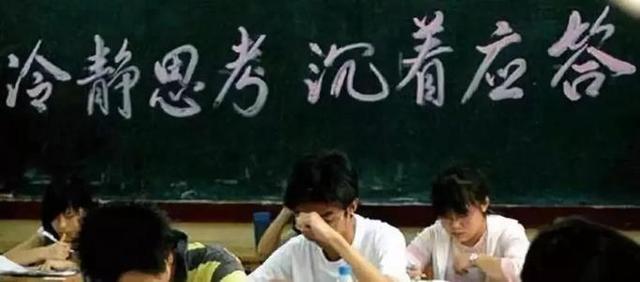 冷静思考 沉着应答